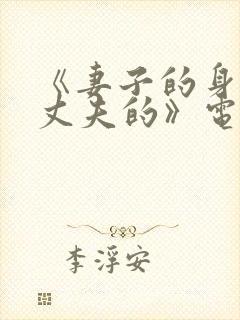 《妻子的身
丈夫的》电
李浮安